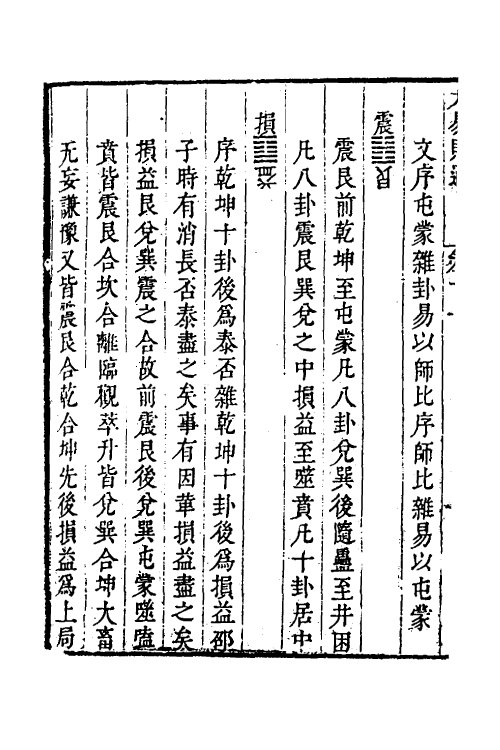 文序屯蒙雜卦易以師比序師比雜易以屯蒙
震䷲艮
震艮前乾坤至屯蒙凡八卦兌巽後隨蠱至井困
凡八卦震艮巽兌之中損益至噬賁凡十卦居中
損䷨益
序乾坤十卦後爲泰否雜乾坤十卦後爲損益邵
子時有消長否泰盡之矣事有因革損益盡之矣
損益艮兌巽震之合故前震艮後兌巽屯蒙噬嗑
賁皆震艮合坎合離臨觀萃升皆兌巽合坤大畜
无妄謙豫又皆震艮合乾合坤先後損益爲上局